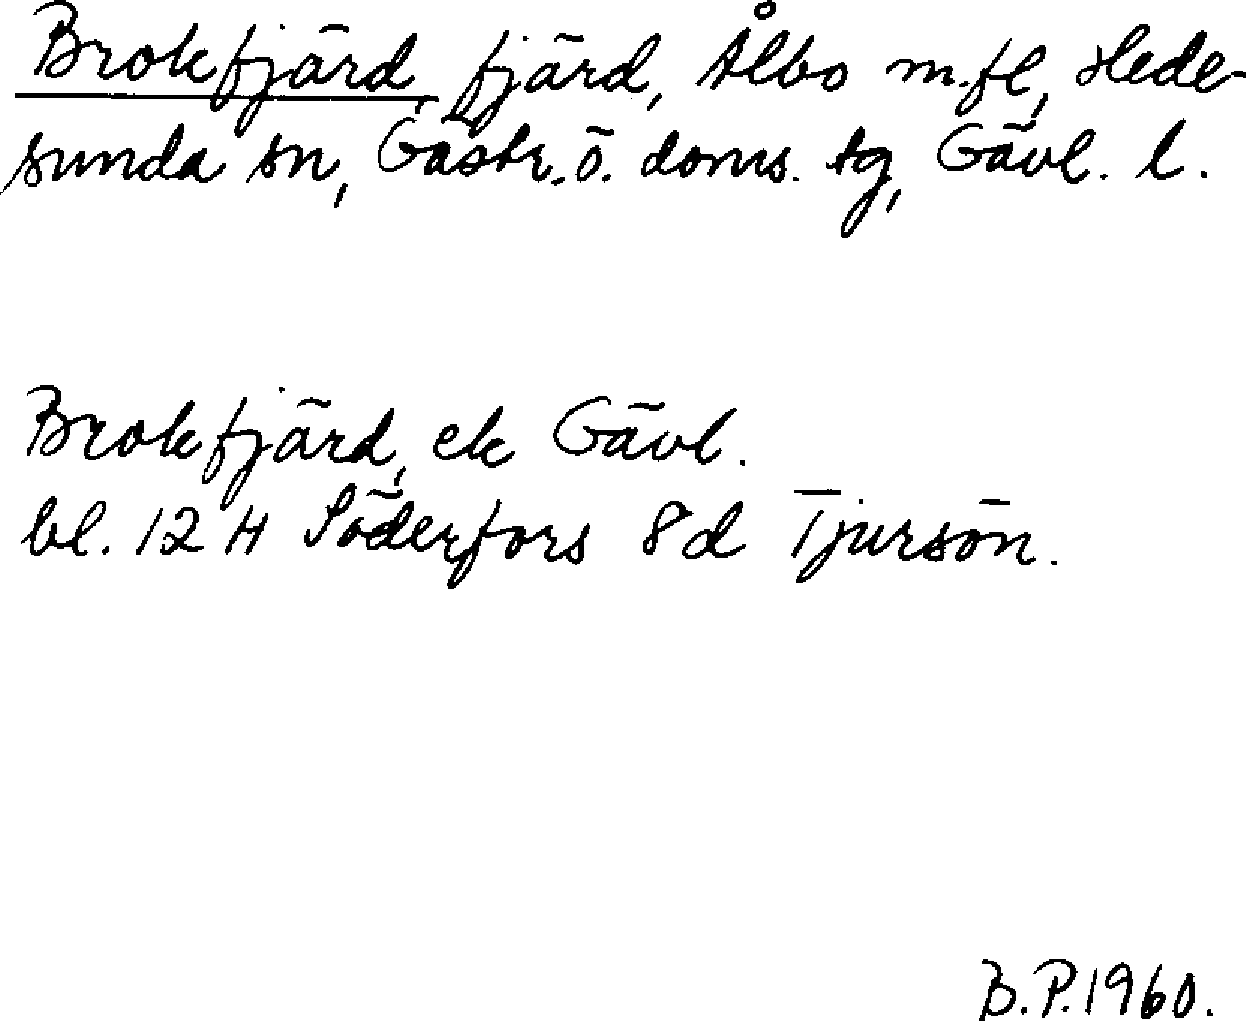 Brokfjärd, fjärd, Ålbo m.fl, Hede-
sunda sn, Gästr. ö. doms. tg, Gävl. l.
Brokfjärd, ek Gävl.
bl. 12 H Söderfors 8d Tjursön.
B.P.1960.